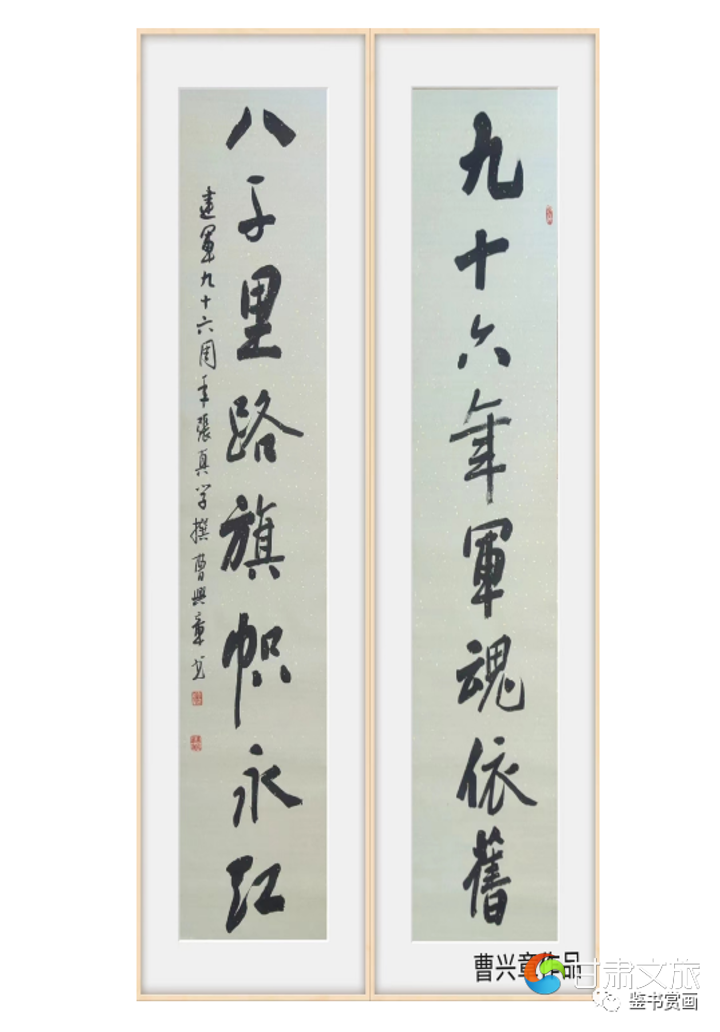 九十六年軍魂依舊
八千里路旗帜永红
建軍九十六周年張真学撰曹興章书
曹兴章作品
甘肃文旅
鉴书赏画